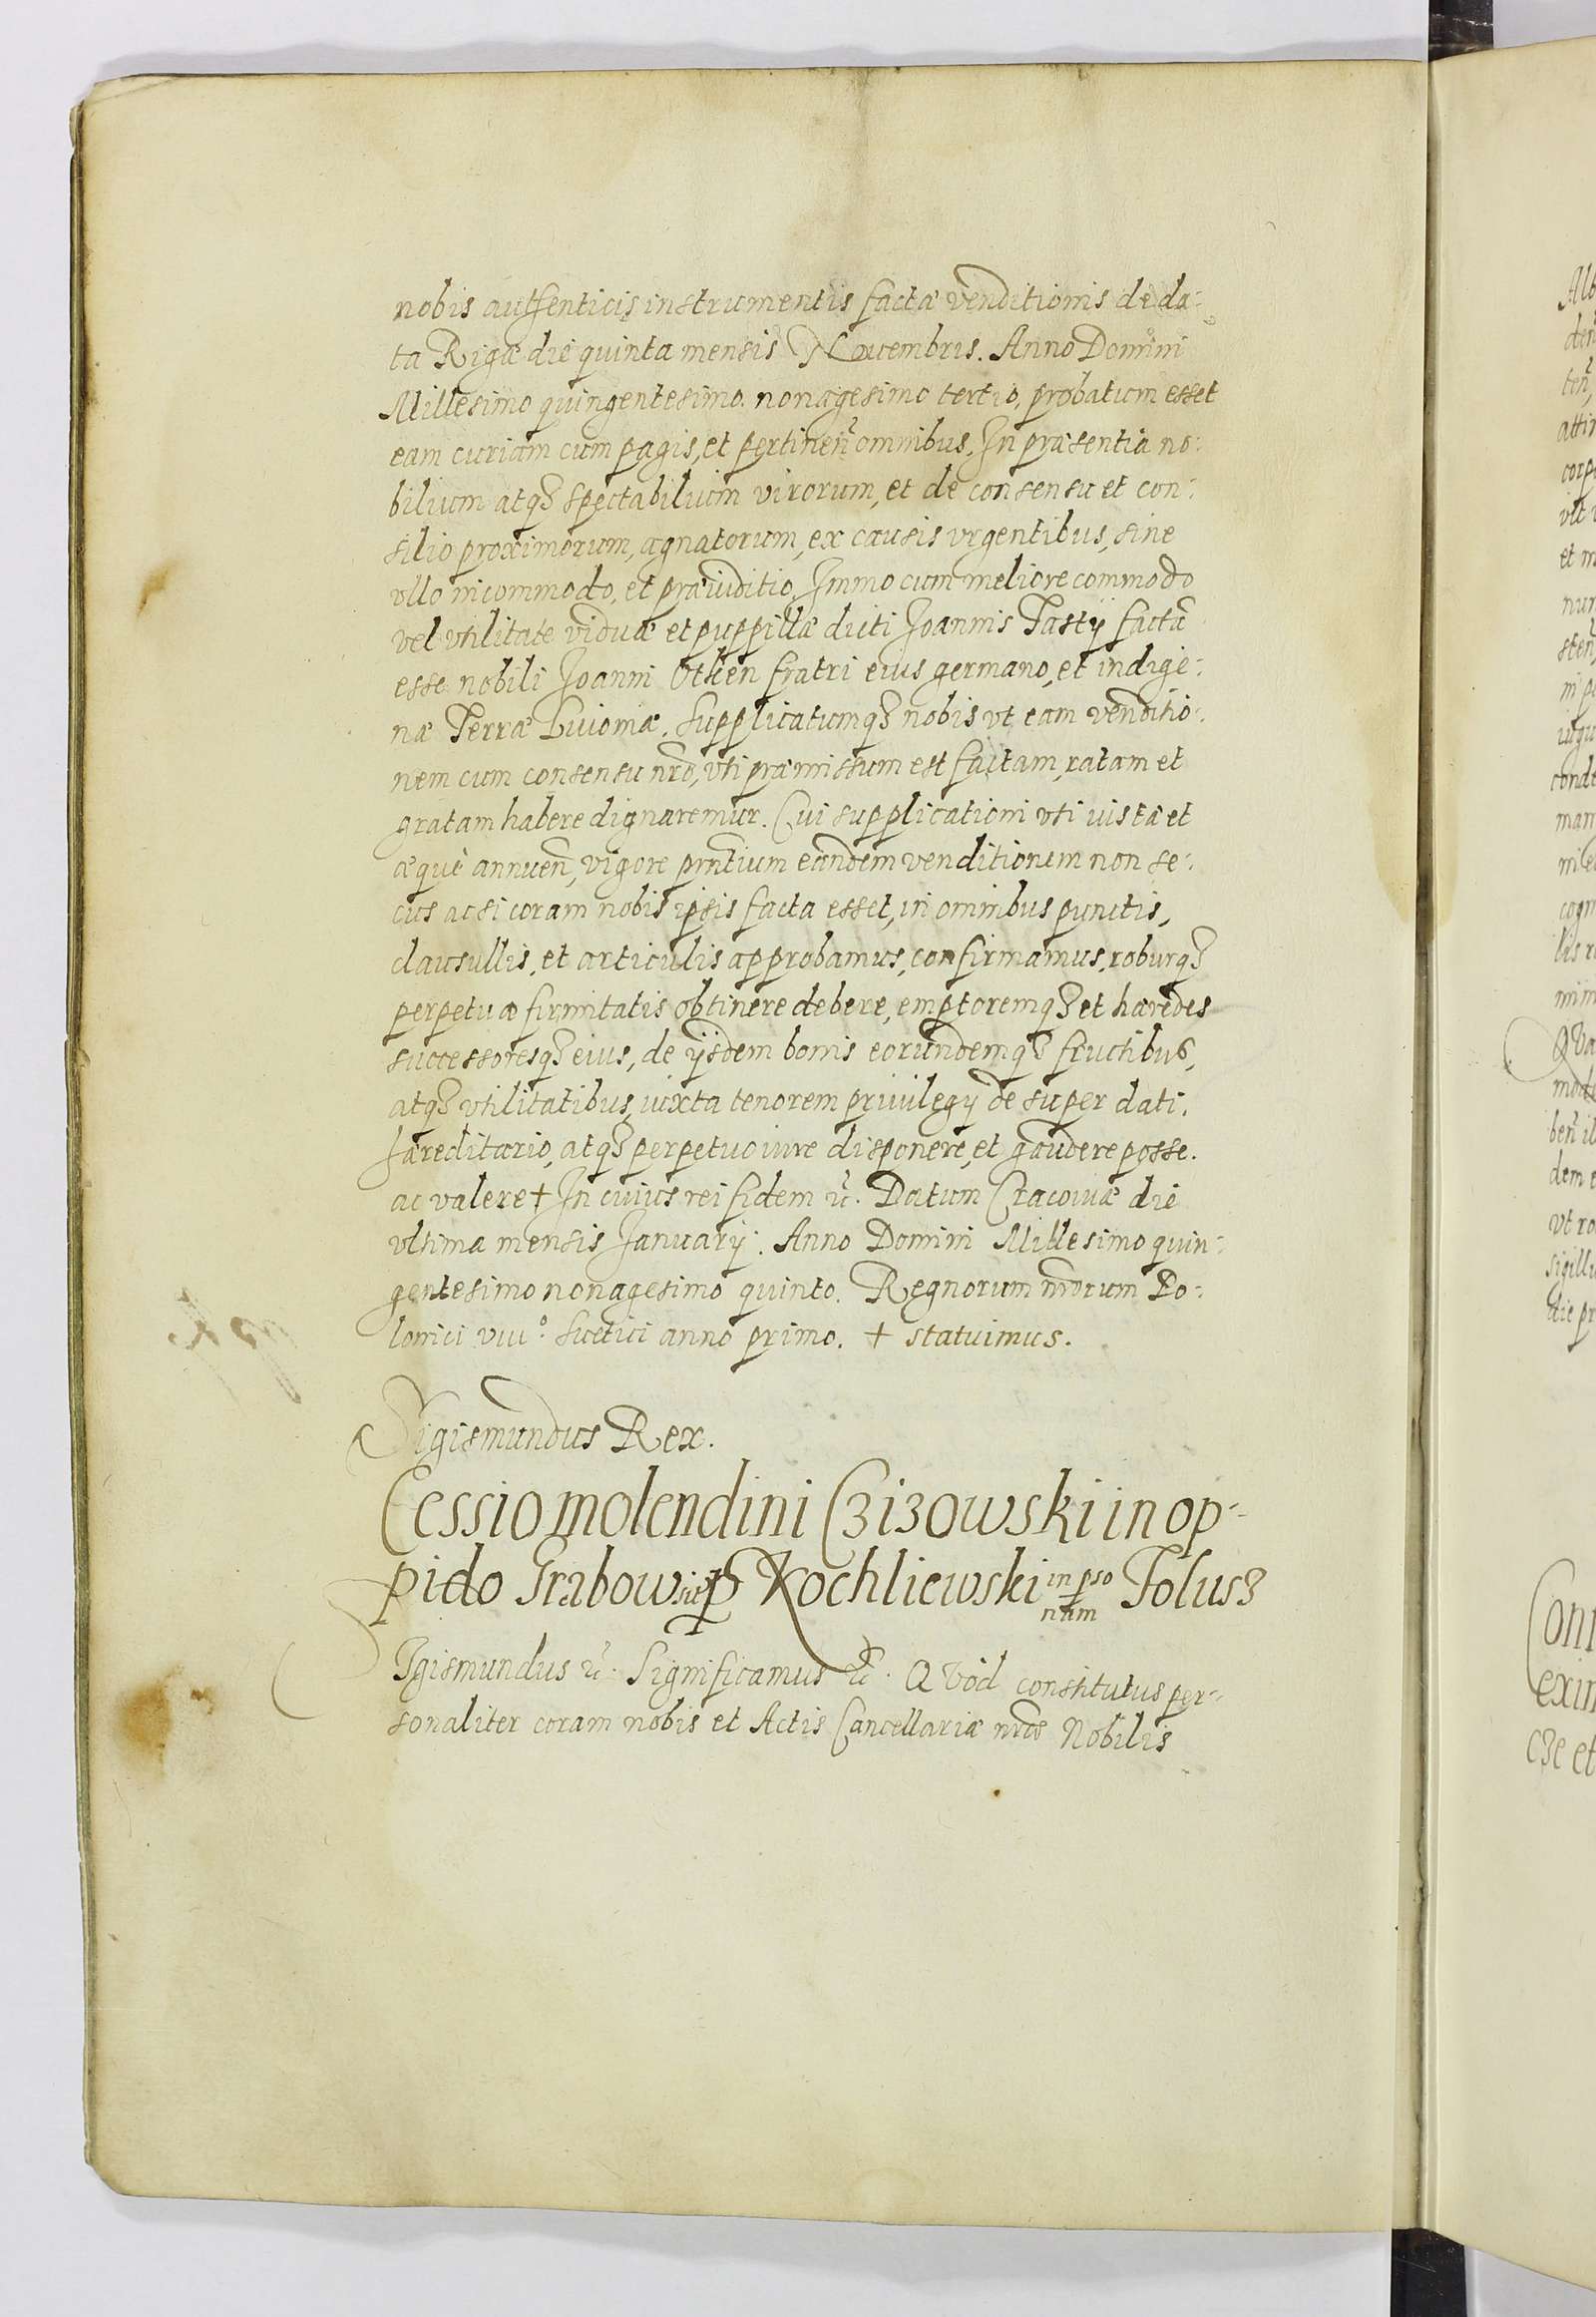 nobis autħenticis instrumentis factæ venditionis de da-
ta Rigæ die quinta mensis Decembris. Anno Domini
Millesimo quingentesimo nonagesimo tertio, probatum esset
eam curiam cum pagis, et pertinen̄ omnibus. In præsentia no-
bilium atqȝ spectabilium virorum, et de consensu et con-
silio proximorum, agnatorum, ex causis vrgentibus, sine
vllo incommodo, et præiuditio. Immo cum meliore commodo
vel vtilitate viduæ et puppillæ dicti Joannis Tastÿ factā
esse nobili Joanni Otken fratri eius germano, et indige-
næ Terræ Liuoniæ. Supplicatumqȝ nobis vt eam venditio-
nem cum consensu nr̄o, vti præmissum est factam, ratam et
gratam habere dignaremur. Cui supplicationi vti iustæ et
æquè annuen̄, vigore pn̄tium eandem venditionem non se-
cus ac si coram nobis ipsis facta esset, in omnibus punctis,
clausullis, et articulis approbamus, confirmamus, roburqȝ
perpetuæ firmitatis obtinere debere, emptoremqȝ et hæredes
successoresqȝ eius, de ÿsdem bonis eorundemqȝ fructibus,
atqȝ vtilitatibus, iuxta tenorem priuilegÿ desuper dati.
Hæreditario, atqȝ perpetuo iure disponere, et gaudere posse.
ac valere † In cuius rei fidem ꝛc̄. Datum Cracouiæ die
vltima mensis Januarÿ. Anno Domini Millesimo quin-
gentesimo nonagesimo quinto. Regnorum nr̄orum Po-
lonici viiiº. Suetici anno primo. † statuimus.
Sigismundus Rex.
Cessio molendini Czizowski in op-
pido Grabow sit ꝑ Kochliewski in ꝑso
nam Tolusz
Sigismundus ꝛc̄. Significamus ꝛc̄. QVòd constitutus per-
sonaliter coram nobis et Actis Cancellariæ nr̄æ Nobilis